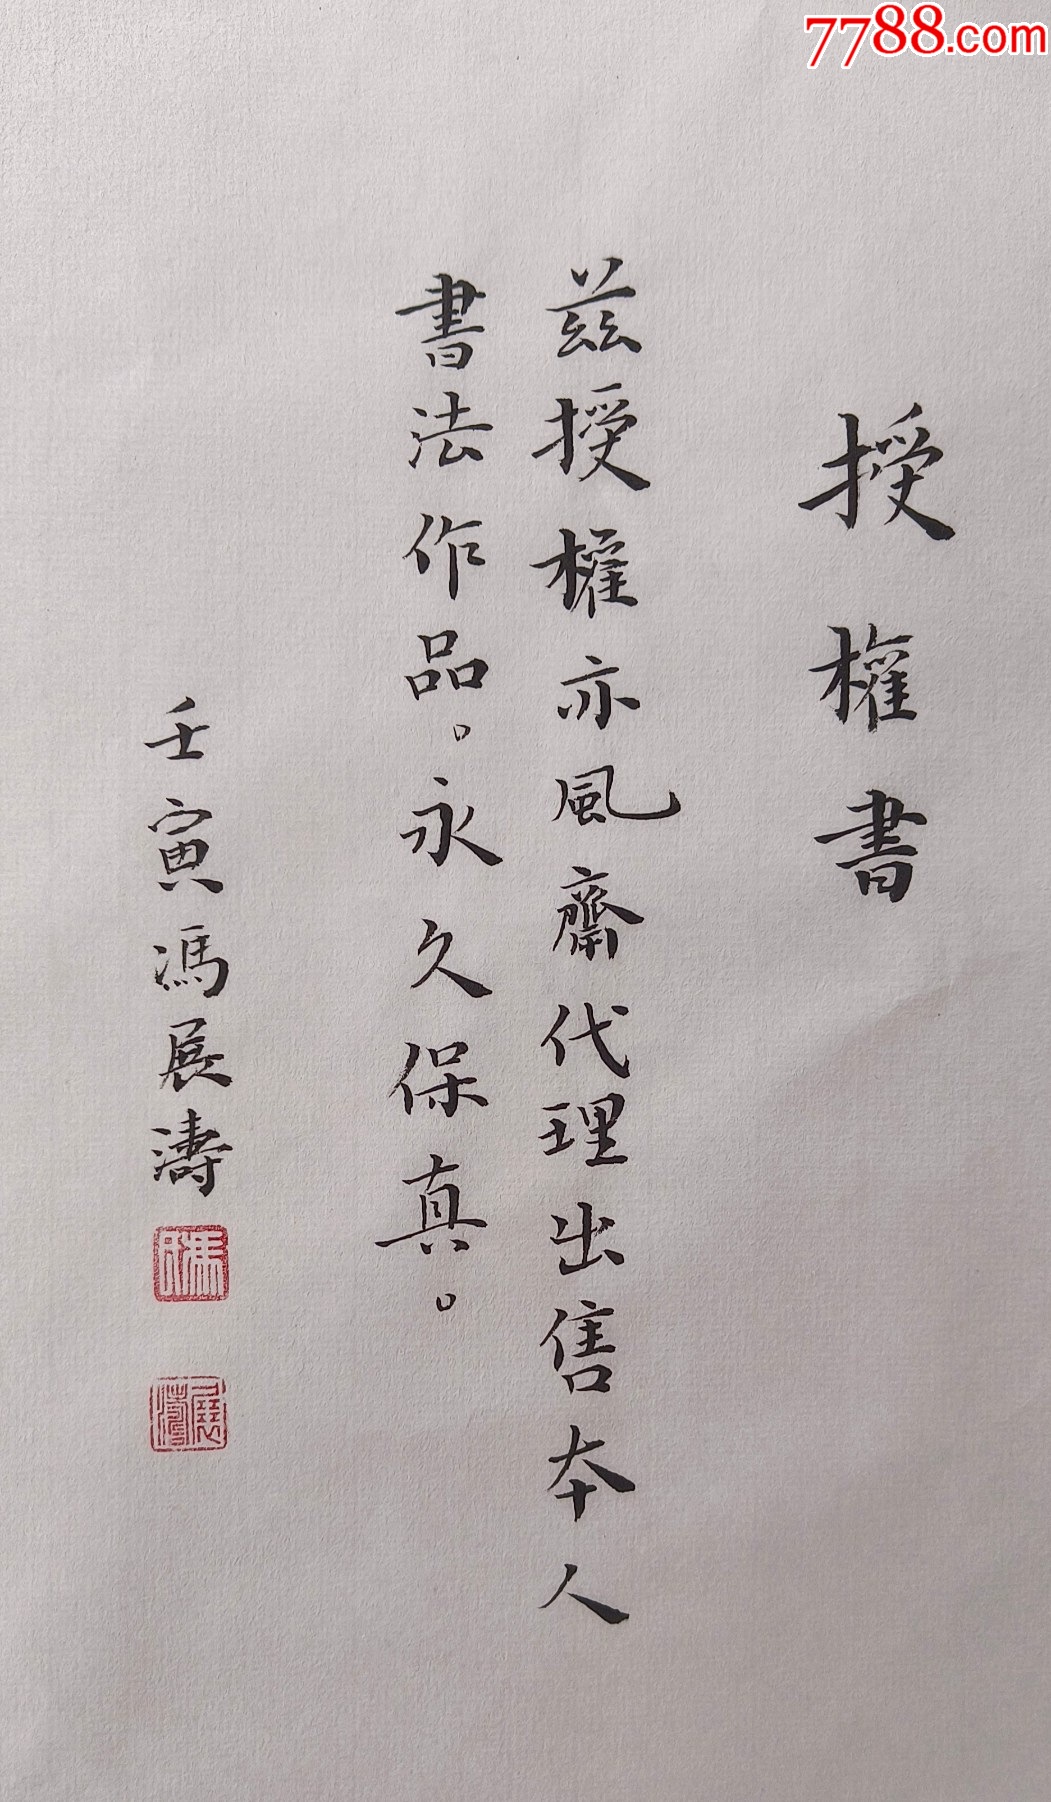 7788.com
授權書
茲授權亦風齋代理出售本人
書法作品。永久保真。
壬寅馮展濤
展濤